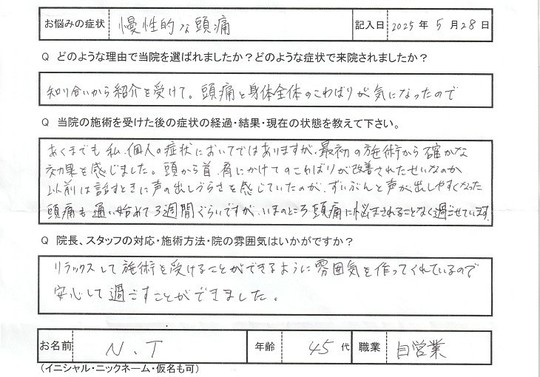 お悩みの症状 慢性的な頭痛 記入日 2025年5月28日
Q どのような理由で当院を選ばれましたか？どのような症状で来院されましたか？
知り合いから紹介を受けて。頭痛と身体全体のこわばりが気になったので
Q 当院の施術を受けた後の症状の経過・結果・現在の状態を教えて下さい。
あくまでも私個人の症状においてではありますが、最初の施術から確かな
効果を感じました。頭から首、肩にかけてのこわばりが改善されたせいなのか
以前は話すときに声の出しづらさを感じていたのが、ずいぶんと声が出しやすくなった
頭痛も通い始めて3週間ぐらいですが、いまのところ頭痛に悩まされることなく過ごせています。
Q 院長、スタッフの対応・施術方法・院の雰囲気はいかがですか？
リラックスして施術を受けることができるように雰囲気を作ってくれているので
安心して過ごすことができました。
お名前 N.T 年齢 45代 職業 自営業
(イニシャル・ニックネーム・仮名も可)